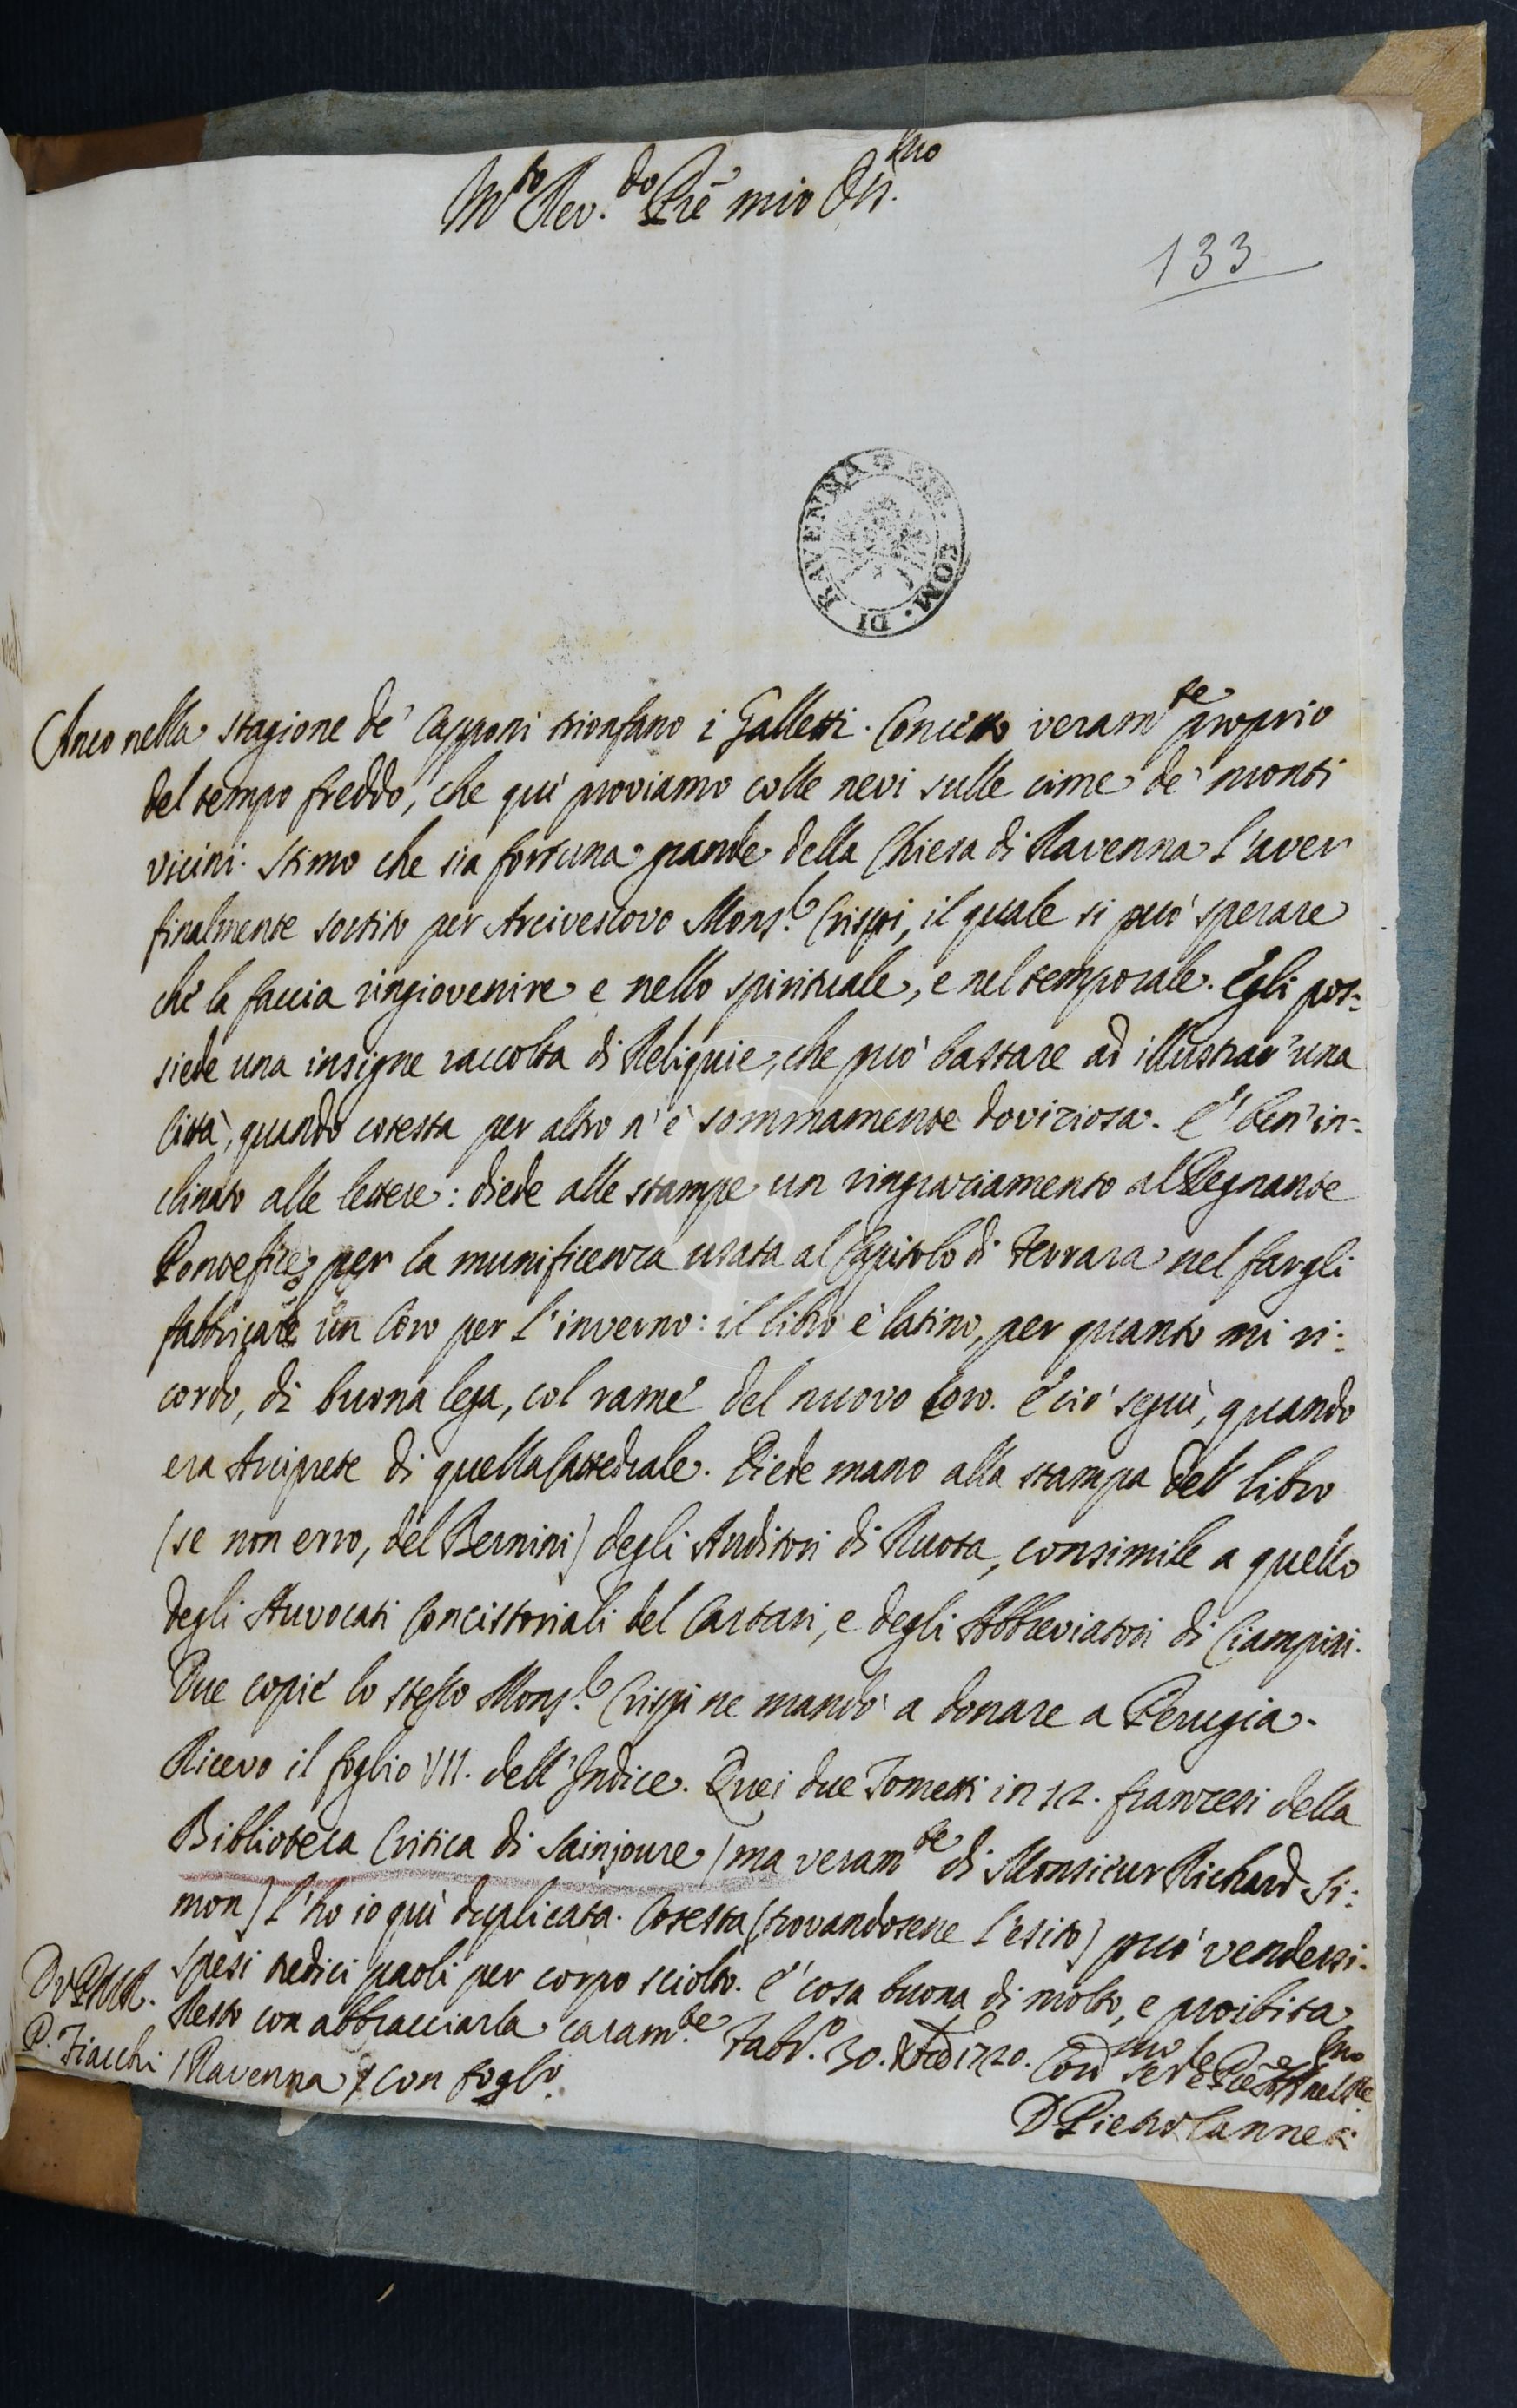 M.to Rev.do Prē mio Oss.mo
133
BIB. COM. DI RAVENNA
Anco nella stagione de' Capponi trionfano i Galletti. Concetto veram.te proprio
del tempo freddo, che quì proviamo colle nevi sulle cime de' monti
vicini. Stimo che sia fortuna grande della Chiesa di Ravenna l'aver
finalmente sortito per Arcivescovo Mons.r Crispi, il quale si può sperare
che la faccia ringiovenire e nello spirituale, e nel temporale. Egli pos-
siede una insigne raccolta di Reliquie, che può bastare ad illustrar' una
Città, quando cotesta per altro n'è sommamente doviziosa. E' ben' in-
clinato alle lettere: diede alle stampe un ringraziamento al Regnante
Pontefice, per la munificenza usata al Capitolo di Ferrara nel fargli
fabbricare un Coro per l'inverno: il libro è latino, per quanto mi ri-
cordo, di buona lega, col rame del nuovo Coro. E ciò seguì, quando
era Arciprete di quella Cattedrale. Diede mano alla stampa del libro
(se non erro, del Bernini) degli Auditori di Ruota, consimile a quello
degli Avvocati Concistoriali del Cartari, e degli Abbreviatori di Ciampini.
Due copie lo stesso Mons.r Crispi ne mandò a donare a Perugia.
Ricevo il foglio VII. dell'Indice. Quei due Tometti in 12. franzesi della
Biblioteca Critica di Sainjoure (ma veram.te di Monsieur Richard Si-
mon) l'ho io quì duplicata. Cotesta (trovandosene l'esito) può vendersi.
Spesi tredici paoli per corpo sciolto. E' cosa buona di molto, e proibita
Resto con abbracciarla caram.te Fabr.o 30. 1720.
D V P M R.
P. Fiacchi / Ravenna / con foglio.
D. Pietro Canneti